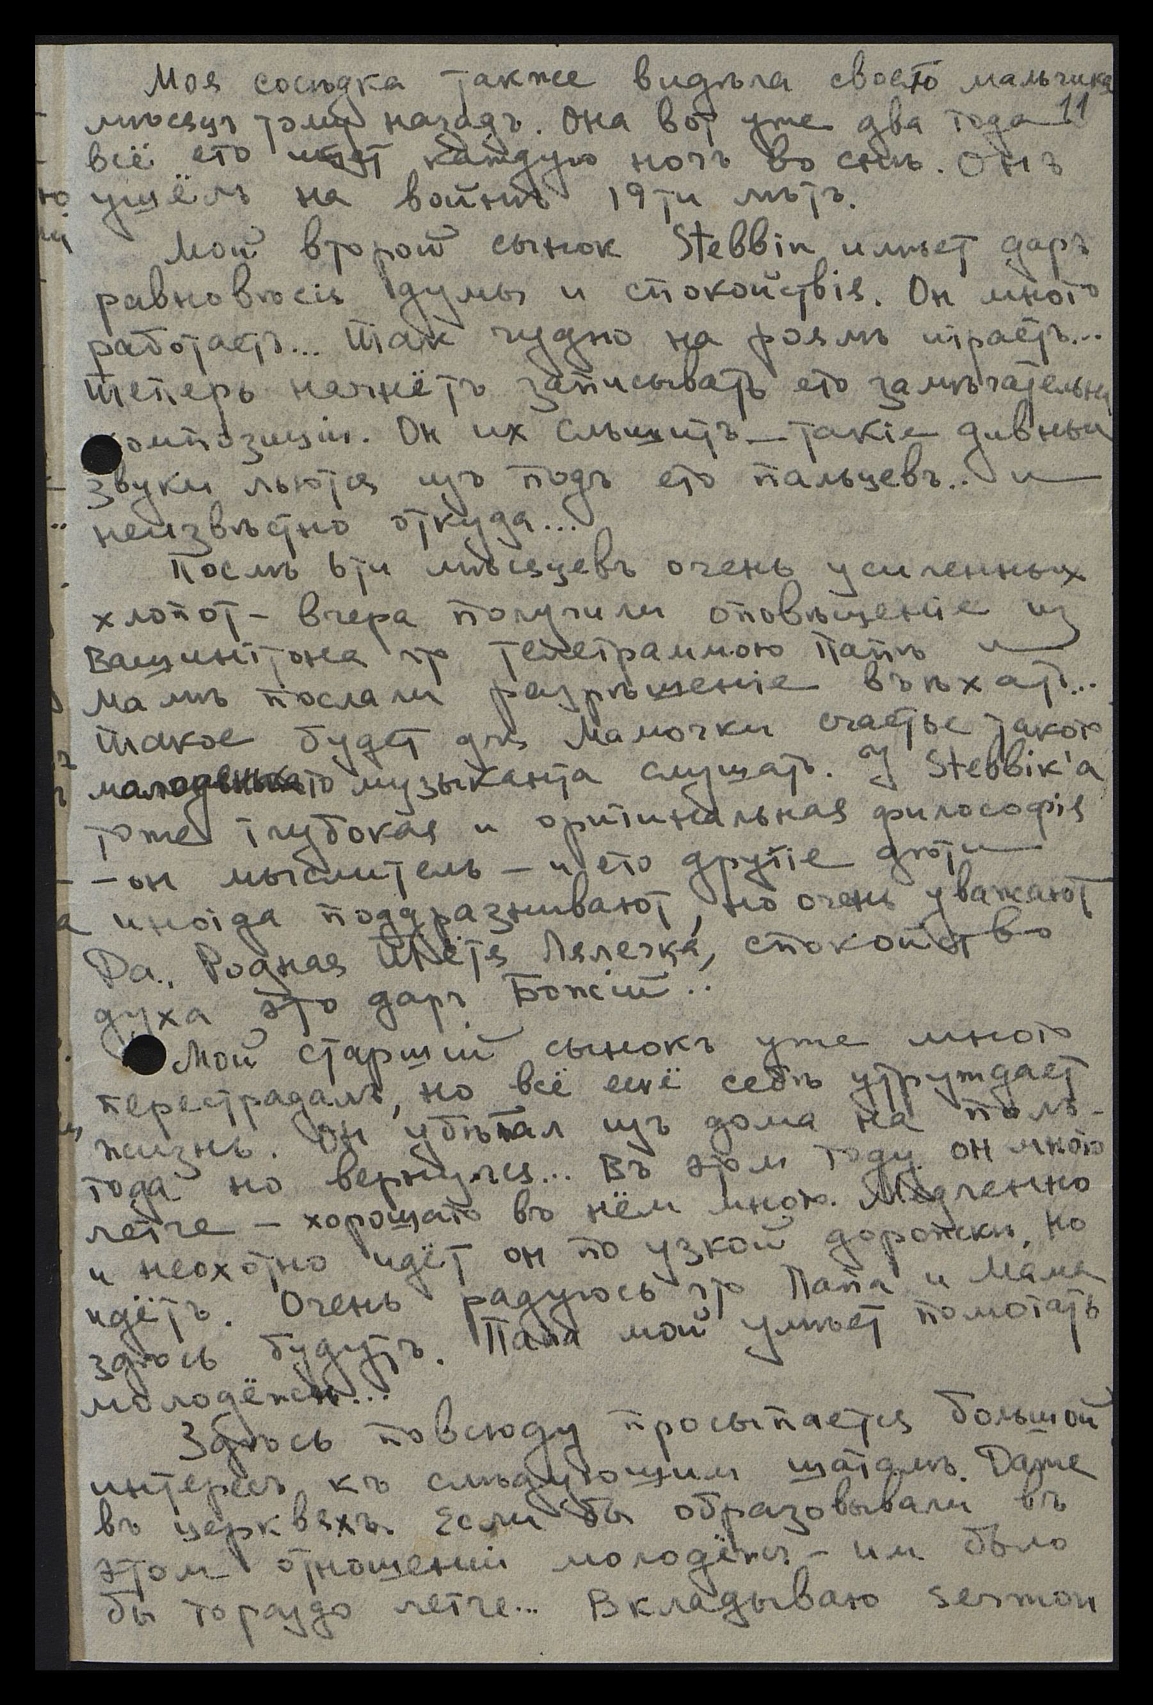 Моя сосѣдка также видѣла своего мальчика
11
мѣсяцъ тому назадъ. Она вот уже два года
всё его ищет каждую ночь во снѣ. Онъ
ушёлъ на войнѣ 19ти лѣтъ.
Мой второй сынок Stebbin имѣет даръ
равновѣсія думы и спокойствія. Он много
работаетъ... Так чудно на роялѣ играетъ...
Теперь начнётъ записывать его замѣчательны
композиціи. Он их слышитъ – такіе дивныи
звуки льются изъ подъ его пальцевъ.. и
неизвѣстно откуда...
Послѣ 6ти мѣсяцевъ очень усиленных
хлопот – вчера получили оповѣщеніе из
Вашингтона что телеграммою Папѣ и
Мамѣ послали разрѣшеніе въѣхать...
Такое будет для Мамочки счастье такого
молоденькаго музыканта слушать. У Stebbik'а
тоже глубокая и оригинальная философія
– он мыслитель – и его другіе дѣти
иногда поддразнивают, но очень уважают
Да, Родная Тётя Лялечка, спокойство
духа это даръ Божій..
Мой старшій сынокъ уже много
перестрадалъ, но всё ещё себѣ утруждает
жизнь. Он убѣгал изъ дома на полъ-
года но вернулся... Въ этом году он много
легче – хорошаго въ нём много. Медленно
и неохотно идёт он по узкой дорожки, но
идётъ. Очень радуюсь что Папа и Мама
здѣсь будутъ. Папа мой умѣет помогать
молодёжи...
Здѣсь повсюду просыпается большой
интересъ къ слѣдующим шагамъ. Даже
въ церквяхъ. Если бы образовывали въ
этом отношеніи молодёжъ – им было
бы гораздо легче... Вкладываю sermon